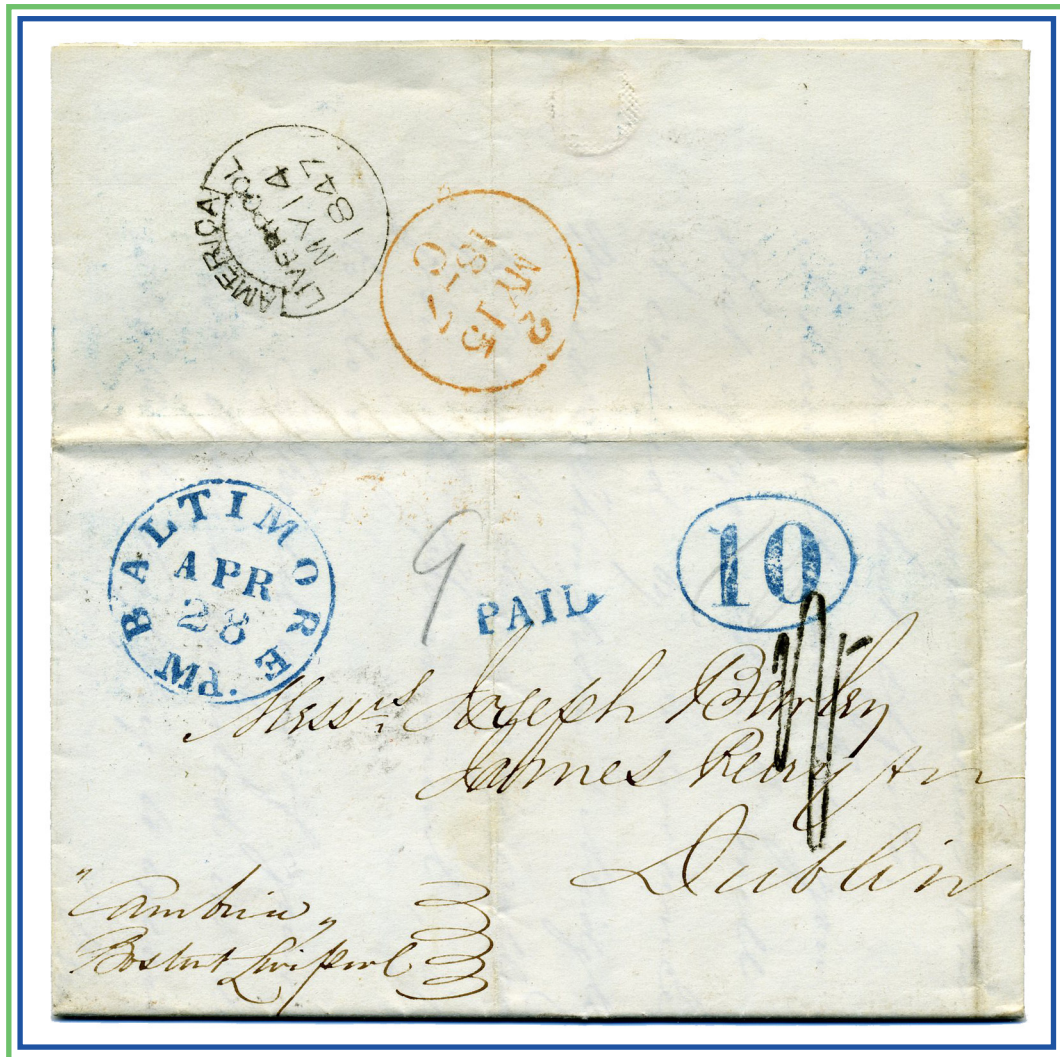 AMERICA
LIVERPOOL
MY 14
1847
2
MY 15
1847
C
BALTIMORE
APR
28
PM.
9
PAID
10
1/-
Messrs Joseph Bewley
James Perry &
Dublin
"Cambria"
Boston & Liverpool